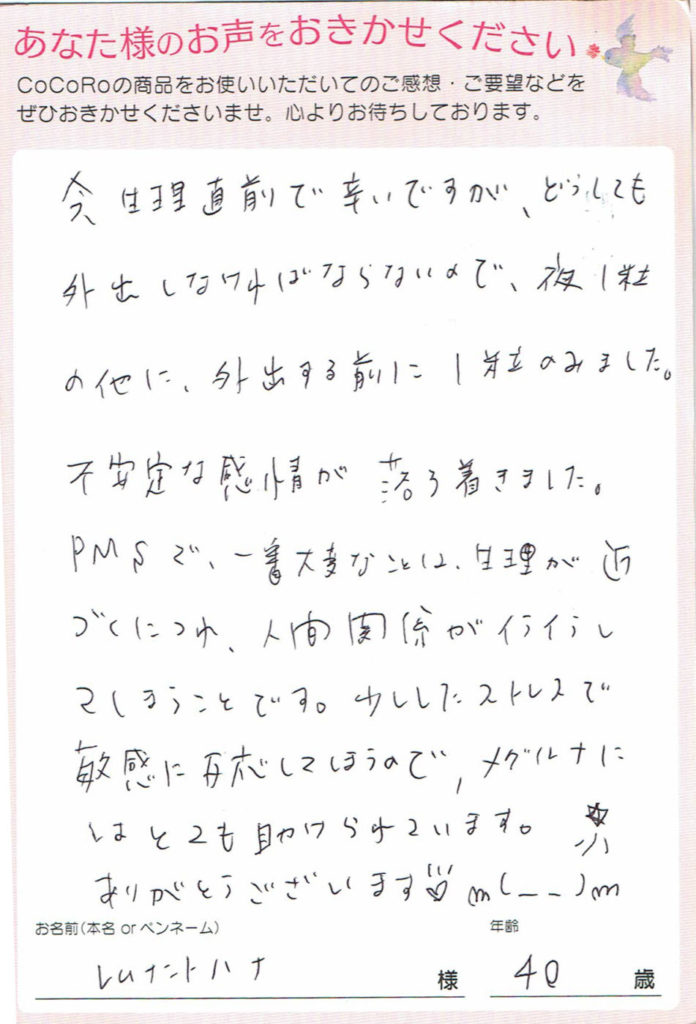 あなた様のお声をおきかせください
CoCoRoの商品をお使いいただいてのご感想・ご要望などを
ぜひおきかせくださいませ。心よりお待ちしております。
今、生理直前で辛いですが、どうしても
外出しなければならないので、夜1粒
の他に、外出する前に1粒のみました。
不安定な感情が落ち着きました。
PMSで、一番大変なことは、生理が近
づくにつれ、人間関係がイライラし
てしまうことです。少しのストレスで
敏感に反応してしまうので、メグルナに
はとても助けられています。
ありがとうございます m(__)m
お名前(本名 or ペンネーム)
年齢
ハナ 様 40 歳